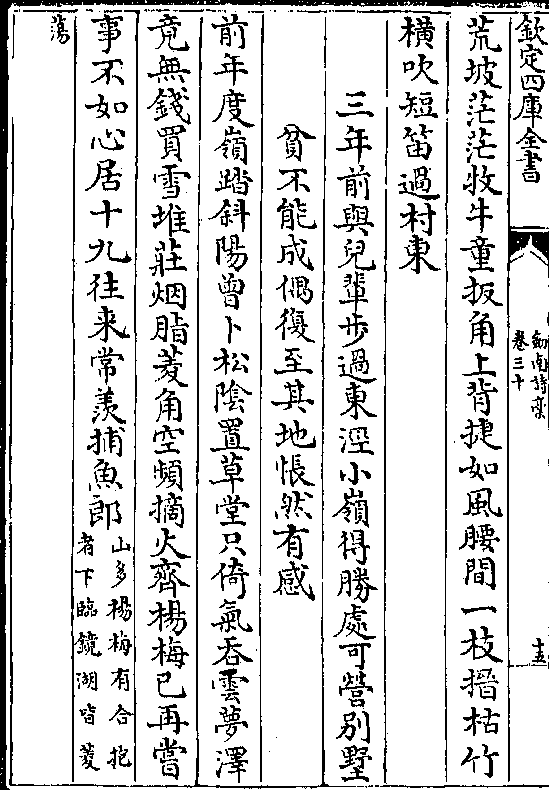 欽定四庫全書
劍南詩稾
卷三十
十五
荒坡茫茫牧牛童扳角上背捷如風腰間一枝搢枯竹
横吹短笛過村東
三年前與兒輩步過東涇小嶺得勝處可營别墅
貧不能成偶復至其地悵然有感
前年度嶺踏斜陽曾卜松隂置草堂只倚氣吞雲夢澤
竟無錢買雪堆莊烟脂菱角空頻摘火齊楊梅已再嘗
事不如心居十九往来常羨捕魚郎
山多楊梅有合抱
者下臨鏡湖皆菱
蕩